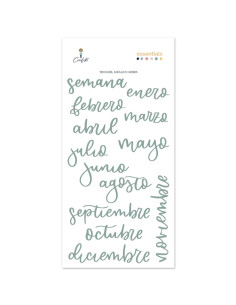 essentials
semana
enero
febrero
marzo
abril
mayo
julio
junio
agosto
septiembre
noviembre
octubre
diciembre